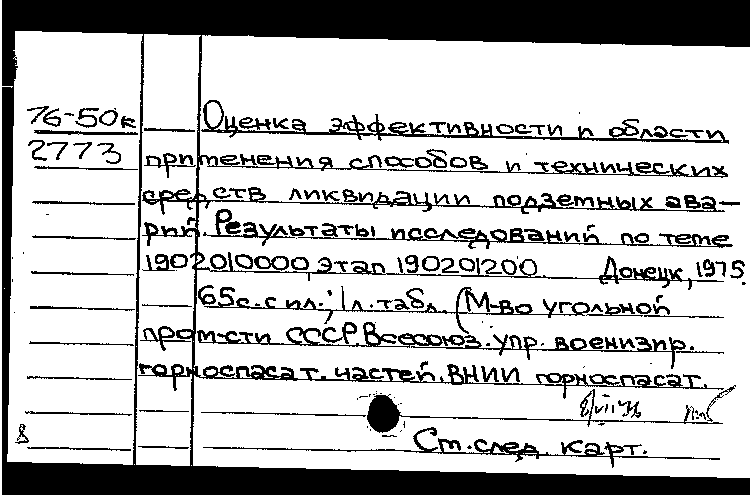 76-50к Оценка эффективности и области
2773 применения способов и технических
средств ликвидации подземных ава-
рий. Результаты исследований по теме
1902010000, этап 190201200 Донецк, 1975.
65с. с ил.; 1 л. табл. (М-во угольной
пром-сти СССР. Всесоюз. упр. военизир.
горноспасат. частей. ВНИИ горноспасат.
8/VII 76
8 Ст. след. карт.